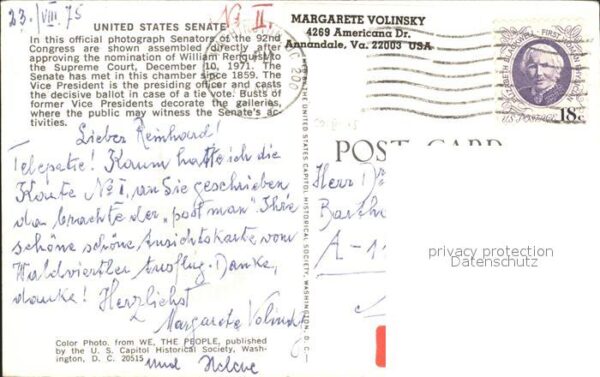 23./VIII. 75
No II.
UNITED STATES SENATE
In this official photograph Senators of the 92nd
Congress are shown assembled directly after
approving the nomination of William Renquist to
the Supreme Court, December 10, 1971. The
Senate has met in this chamber since 1859. The
Vice President is the presiding officer and casts
the decisive ballot in case of a tie vote. Busts of
former Vice Presidents decorate the galleries,
where the public may witness the Senate's ac-
tivities.
Lieber Reinhard!
Telepatie! Kaum hatte ich die
Karte No I. an Sie geschrieben,
da brachte der "postman" Ihre
schöne schöne Ansichtskarte vom
Waldviertler Ausflug. Danke,
danke! Herzlichst
Margarete Volinsky
und Helene
Color Photo. from WE, THE PEOPLE, published
by the U. S. Capitol Historical Society, Wash-
ington, D. C. 20515
THE UNITED STATES CAPITOL HISTORICAL SOCIETY, WASHINGTON, D.C.
MARGARETE VOLINSKY
4269 Americana Dr.
Annandale, Va. 22003 USA
ELIZABETH BLACKWELL · FIRST WOMAN PHYSICIAN
U.S. POSTAGE 18c
POST CARD
Herr
Barthe
A-11
privacy protection
Datenschutz